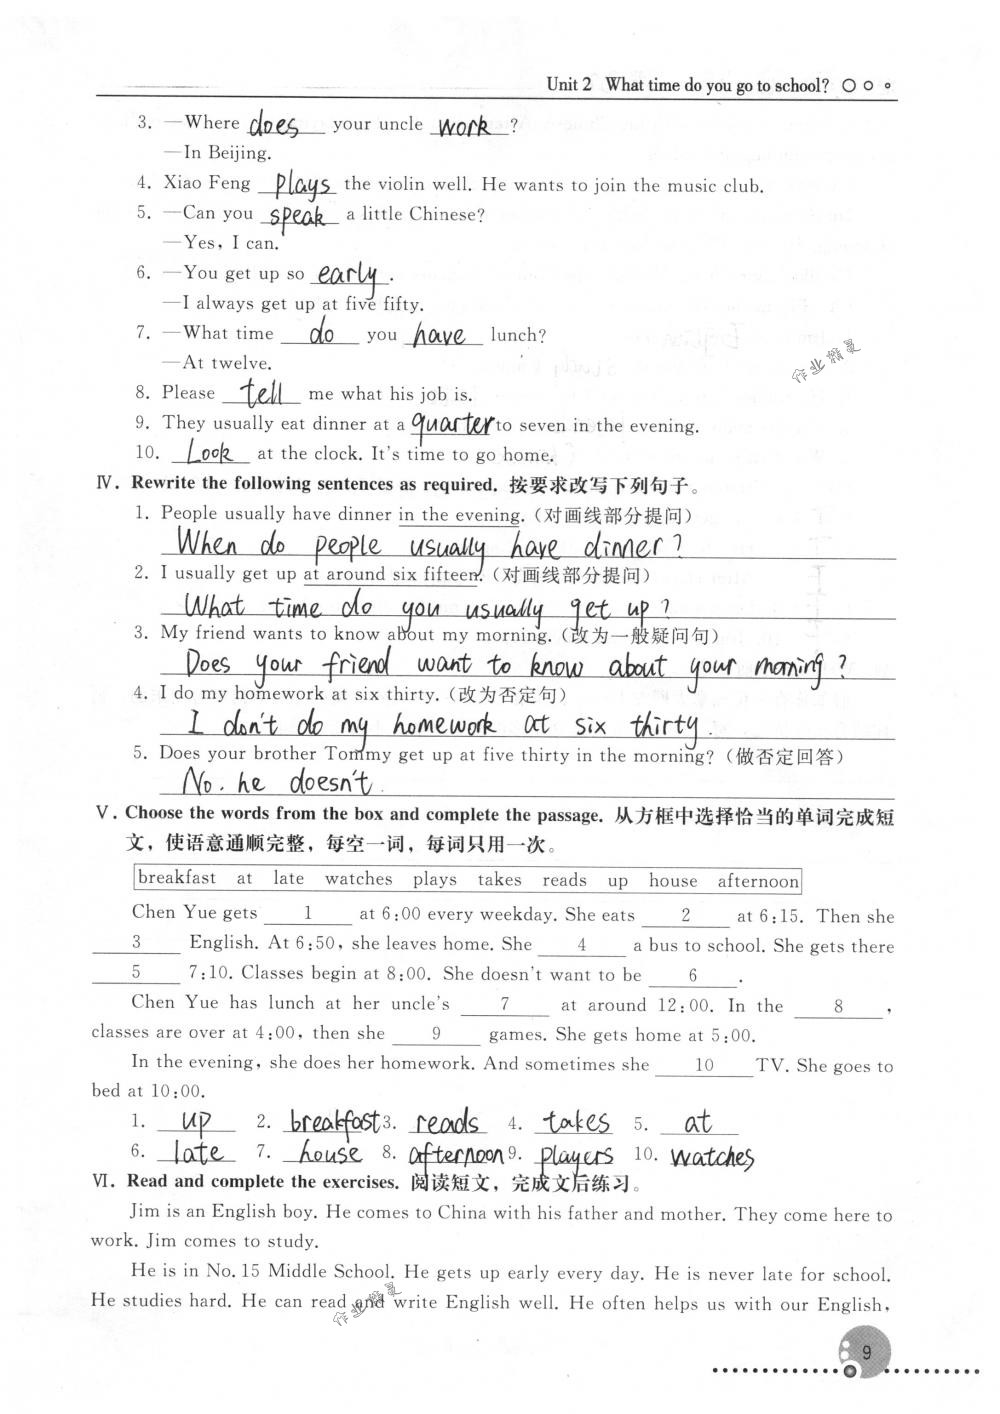 Unit 2 What time do you go to school?
3. —Where does your uncle work?
—In Beijing.
4. Xiao Feng plays the violin well. He wants to join the music club.
5. —Can you speak a little Chinese?
—Yes, I can.
6. —You get up so early.
—I always get up at five fifty.
7. —What time do you have lunch?
—At twelve.
作业精灵
8. Please tell me what his job is.
9. They usually eat dinner at a quarter to seven in the evening.
10. Look at the clock. It's time to go home.
Ⅳ. Rewrite the following sentences as required. 按要求改写下列句子。
1. People usually have dinner in the evening. (对画线部分提问)
When do people usually have dinner?
2. I usually get up at around six fifteen. (对画线部分提问)
What time do you usually get up?
3. My friend wants to know about my morning. (改为一般疑问句)
Does your friend want to know about your morning?
4. I do my homework at six thirty. (改为否定句)
I don't do my homework at six thirty.
5. Does your brother Tommy get up at five thirty in the morning? (做否定回答)
No. he doesn't.
Ⅴ. Choose the words from the box and complete the passage. 从方框中选择恰当的单词完成短
文，使语意通顺完整，每空一词，每词只用一次。
breakfast at late watches plays takes reads up house afternoon
Chen Yue gets 1 at 6:00 every weekday. She eats 2 at 6:15. Then she
3 English. At 6:50, she leaves home. She 4 a bus to school. She gets there
5 7:10. Classes begin at 8:00. She doesn't want to be 6.
Chen Yue has lunch at her uncle's 7 at around 12:00. In the 8,
classes are over at 4:00, then she 9 games. She gets home at 5:00.
In the evening, she does her homework. And sometimes she 10 TV. She goes to
bed at 10:00.
1. up 2. breakfast 3. reads 4. takes 5. at
6. late 7. house 8. afternoon 9. players 10. watches
Ⅵ. Read and complete the exercises. 阅读短文，完成文后练习。
Jim is an English boy. He comes to China with his father and mother. They come here to
work. Jim comes to study.
He is in No. 15 Middle School. He gets up early every day. He is never late for school.
He studies hard. He can read and write English well. He often helps us with our English,
作业精灵
9